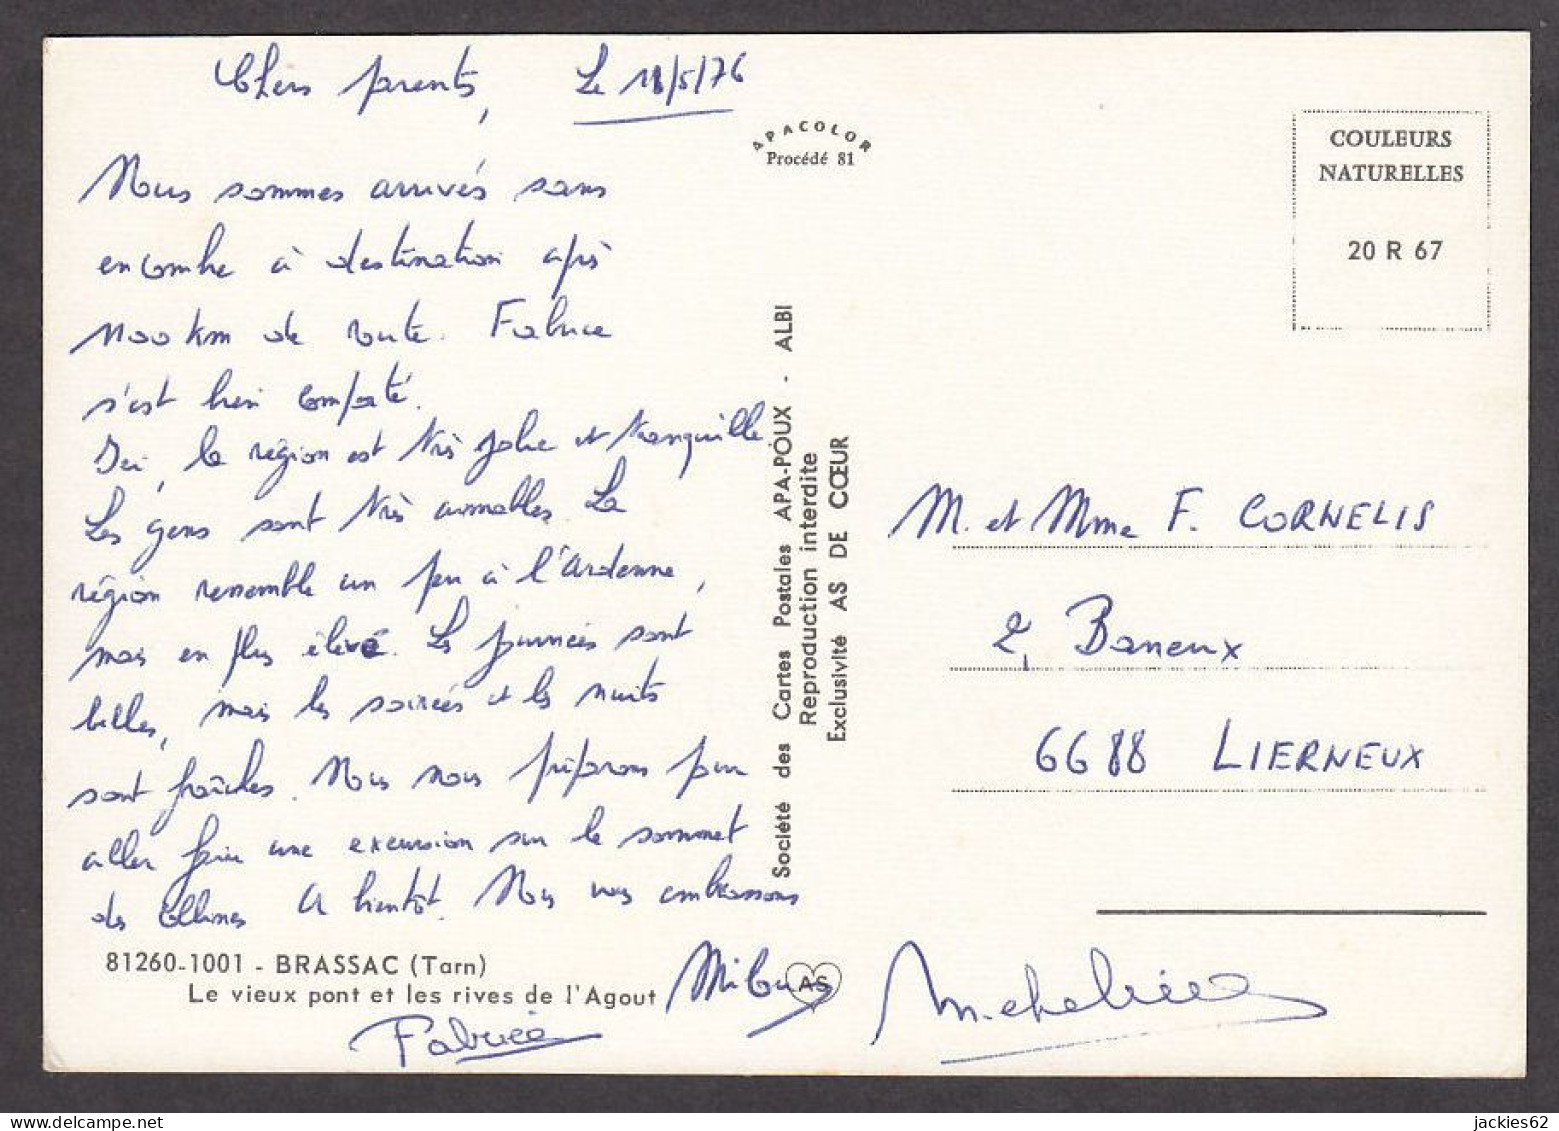 Chers parents, Le 11/5/76
Nous sommes arrivés sans
encombre à destination après
1100 km de route. Fabrice
s'est bien comporté.
Ici, la région est très jolie et tranquille.
Les gens sont très aimables. La
région ressemble un peu à l'Ardenne,
mais en plus élevé. Les journées sont
belles, mais les soirées et les nuits
sont fraîches. Nous nous préparons pour
aller faire une excursion sur le sommet
des collines. A bientôt. Nous vous embrassons
81260-1001 - BRASSAC (Tarn)
Le vieux pont et les rives de l'Agout
Fabrice
AS
APACOLOR
Procédé 81
Société des Cartes Postales APA-POUX - ALBI
Reproduction interdite
Exclusivité AS DE CŒUR
COULEURS
NATURELLES
20 R 67
M. et Mme F. CORNELIS
2, Baneux
6688 LIERNEUX
jackies62